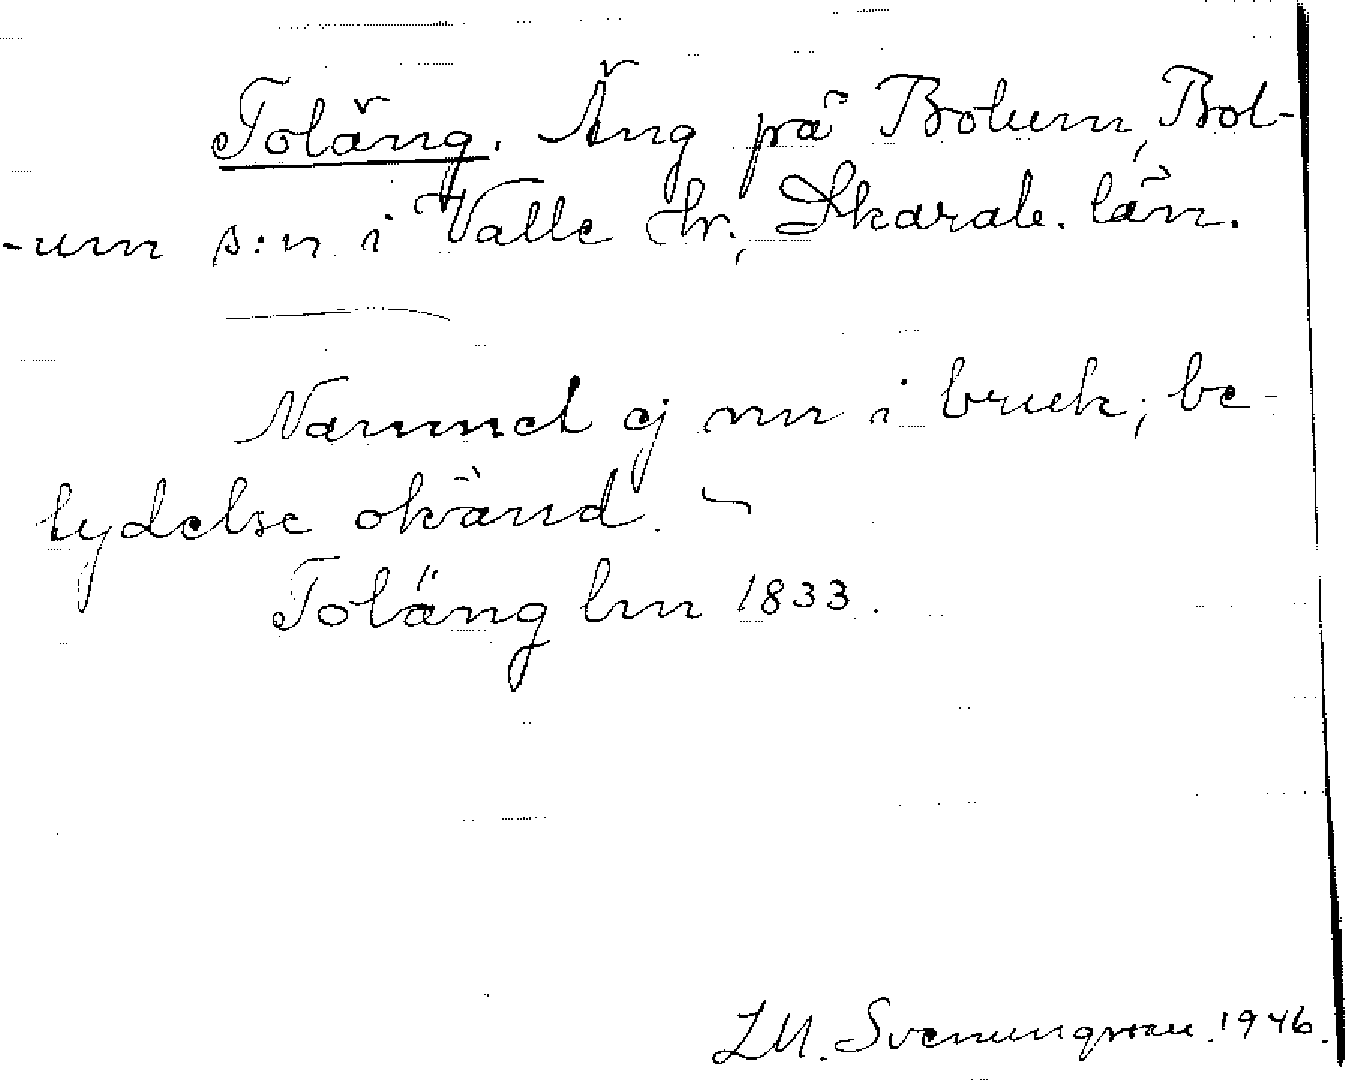 Toläng. Äng på Bolum, Bol-
-um s:n i Valle hr., Skarab. län.
Namnet ej nu i bruk; be-
tydelse okänd.
Toläng lm 1833.
L.M. Svenungsson. 1946.